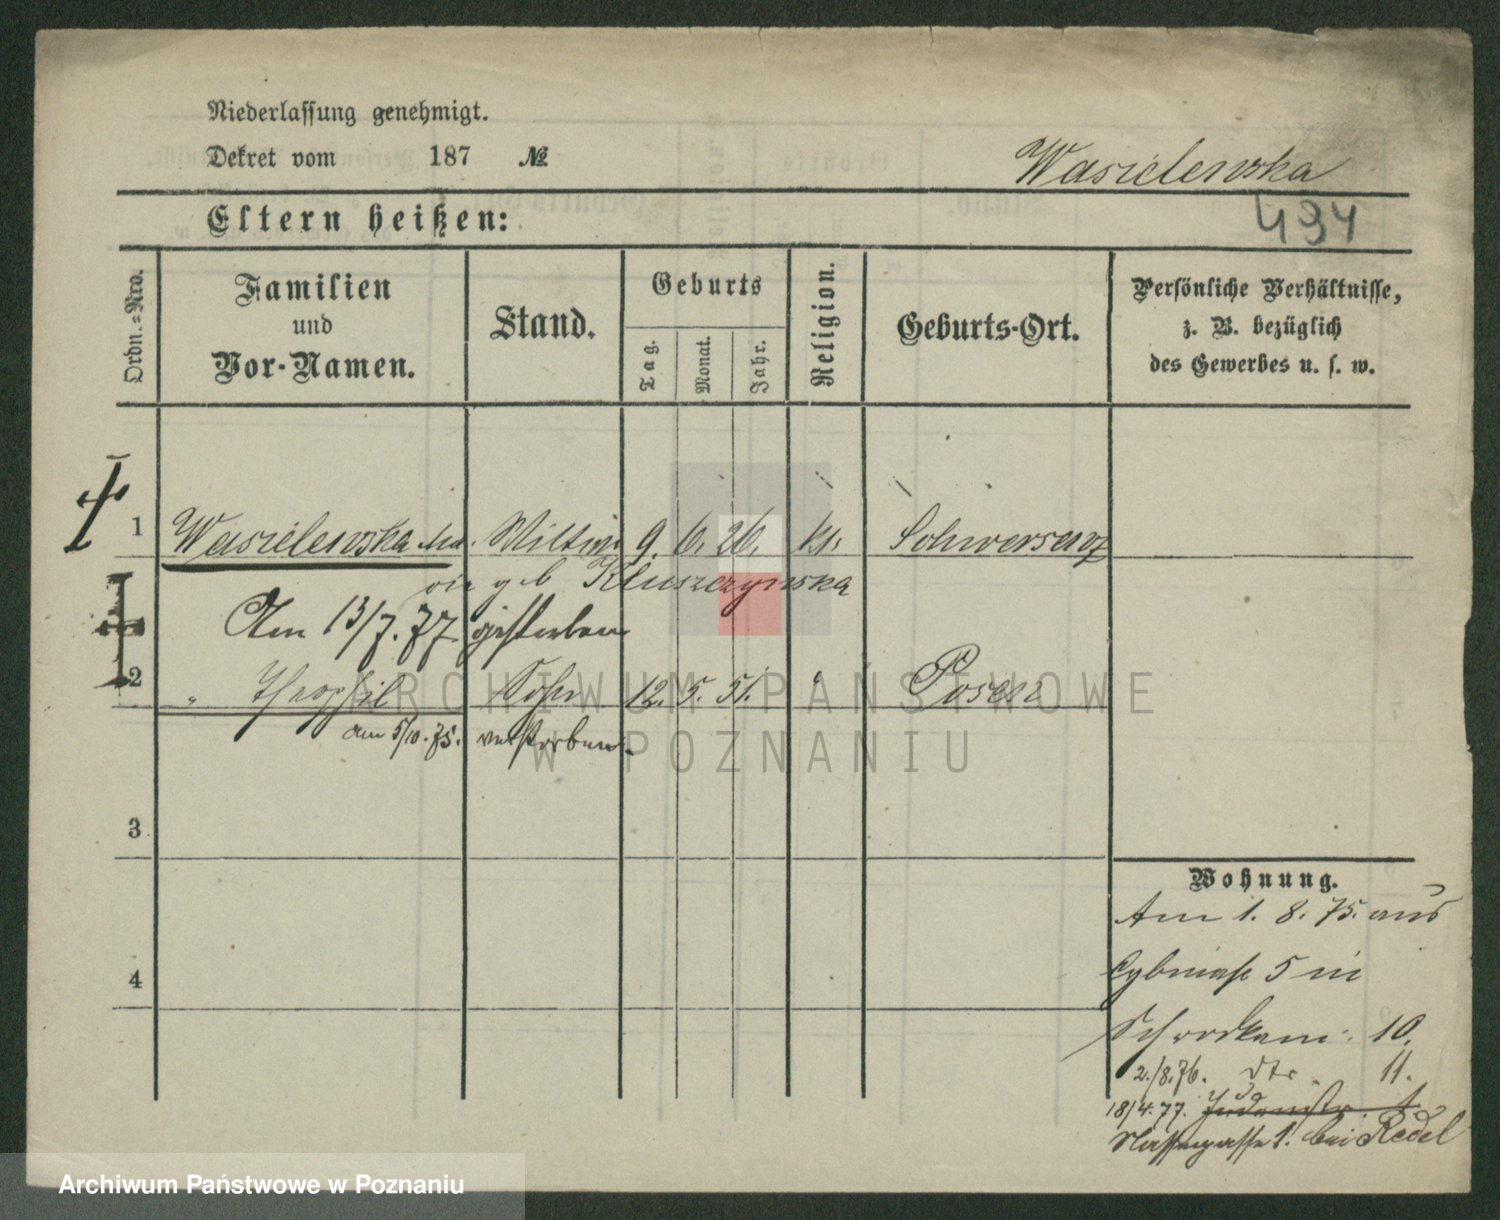 Niederlassung genehmigt.
Dekret vom 187 №
Wasielewska
Eltern heißen:
494
Ordn.=Nro.
Familien
und
Vor-Namen.
Stand.
Geburts
Tag.
Monat.
Jahr.
Religion.
Geburts-Ort.
Persönliche Verhältnisse,
z. B. bezüglich
des Gewerbes u. s. w.
1 Wasielewska 9. 6. 26. kt. Schwersenz
geb Kluszczynska
Am 13/7. 77 gestorben
2 " Theophil Sohn 12. 5. 51. " Posen
am 5/10. 75. verstorben.
3
4
Wohnung.
Am 1. 8. 75. aus
Cybinastr 5 in
Schrodkam: 10.
2./8. 76. dto 11.
18/4. 77. Judenstr. 1
1. bei Redel
ARCHIWUM PAŃSTWOWE
W POZNANIU
Archiwum Państwowe w Poznaniu